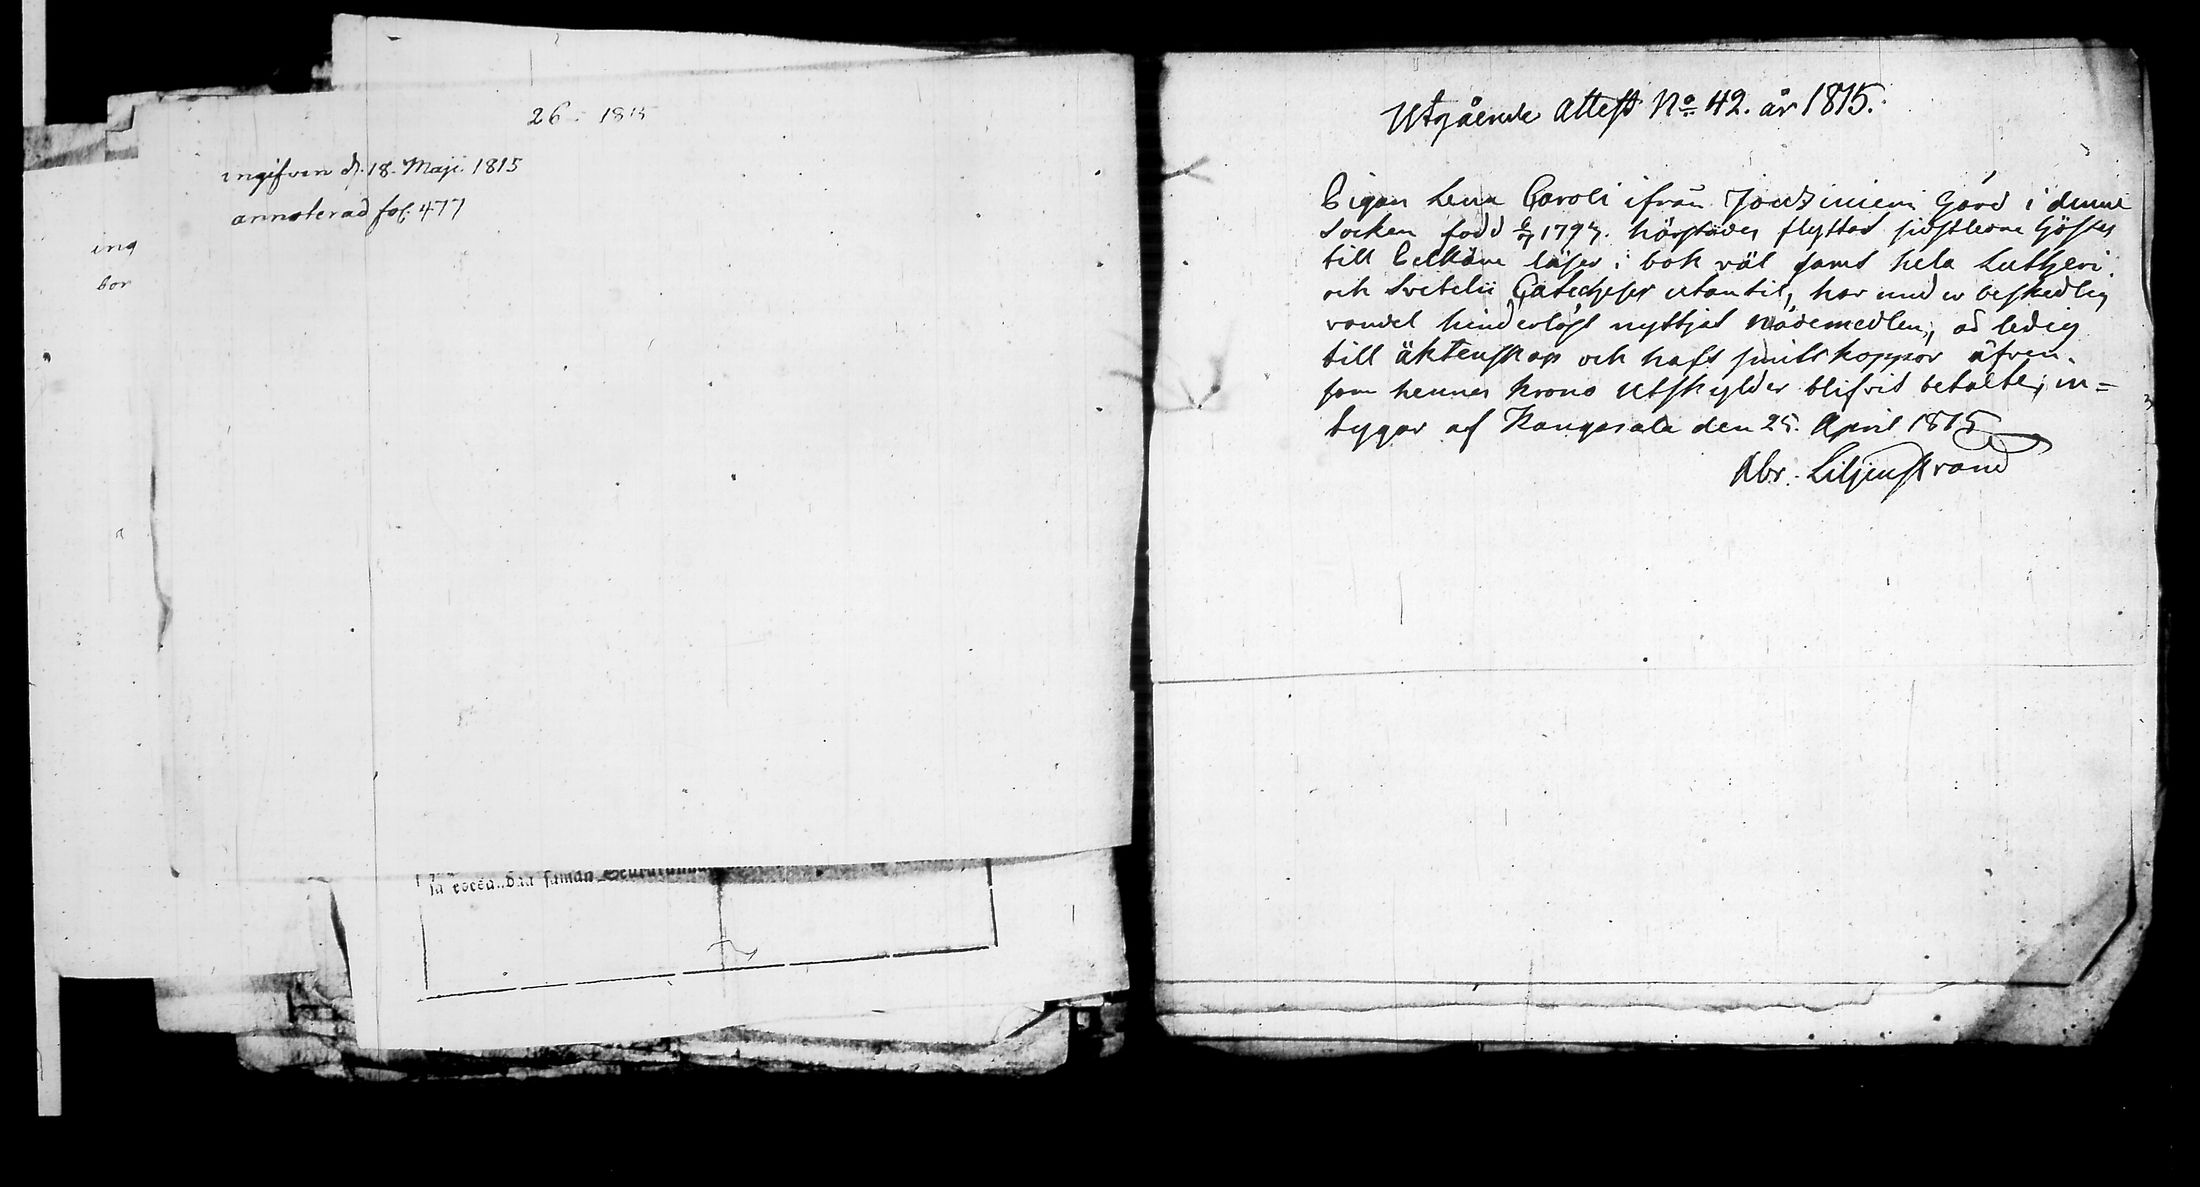 26 - 1815
ingifven d. 18. Maji 1815
annoterad fol. 477
ing
bor
Utgående Attest No 42. år 1815.
Pigan Lena Caroli ifrån Gård i denne
Socken född 1797. härstädes flyttad sidstledne
till läser i bok väl samt hela Lutheri
och Svebelii Catecheser utantil, har med en beskedlig
vandel hinderlöst nyttjat Nådemedlen, är ledig
till äktenskap och haft smittkoppor äfven-
som hennes krono utskylder blifvit betalte; in=
tygar af Kangasala den 25. April 1815
Abr. Liljenstrand